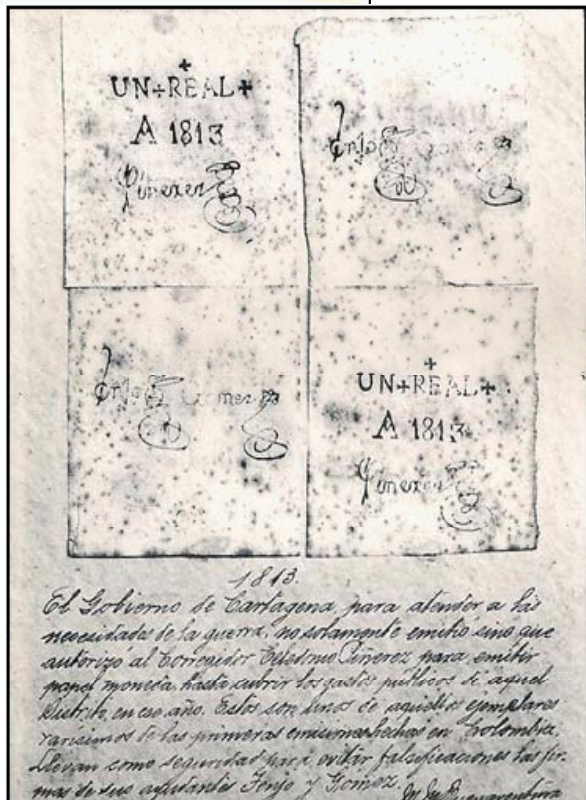 UN+REAL+
A 1813
Piñerez
Gomez
Gomez
UN+REAL+
A 1813
Piñerez
1813.
El Gobierno de Cartagena, para atender a las
necesidades de la guerra, no solamente emitió sino que
autorizó al Corregidor Celedonio Piñerez para emitir
papel moneda hasta cubrir los gastos públicos de aquel
Distrito, en ese año. Estos son unos de aquellos ejemplares
rarisimos de las primeras emisiones hechas en Colombia.
Llevan como seguridad para evitar falsificaciones las fir-
mas de sus ayudantes Tenjo y Gomez.
Buenaventura